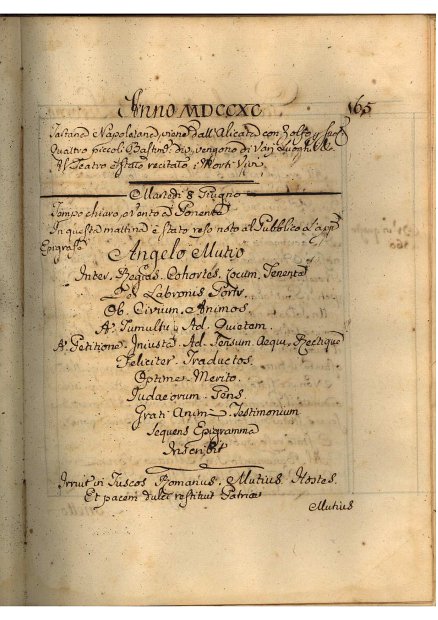 Anno MDCCXC 165
Tartana Napoletana, viene dall'Alicata con Zolfo, e
Quattro piccoli Bastim.ti div. vengono di Varj Luoghi
Al Teatro è stato recitato i Morti Vivi
Martedì 8 Giugno
Tempo chiaro, Vento a Ponente
In questa mattina è stato reso noto al Pubblico l'app.
Epigrafe
Angelo Mutio
Inter. Regias. Cohortes. Locum. Tenente
Labronis Portu.
Ob. Civium. Animos.
A. Tumultu. Ad. Quietem.
A. Petitione. Iniusta. Ad. Sensum. Aequi. Rectique
Feliciter. Traductos.
Optime. Merito.
Iudaeorum. Gens.
Grati. Animi. Testimonium
Sequens Epigramma
Inscribit
Irruit in Tuscos Romanus. Mutius. Hostes.
Et pacem dulce restituit Patriae
Mutius